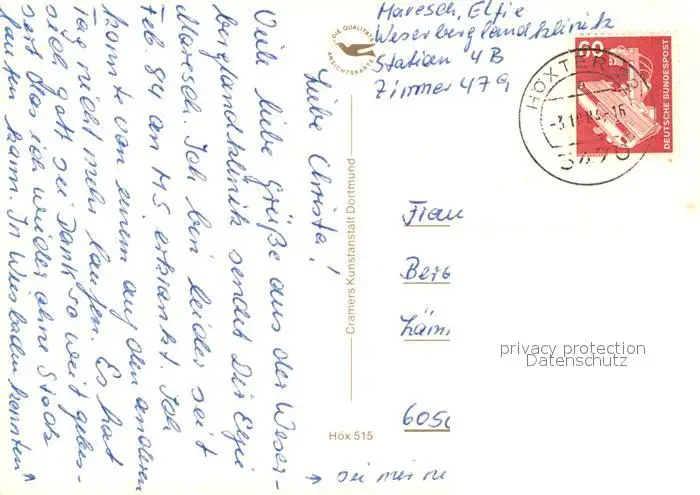 Maresch, Elfie
Weserberglandklinik
Station 4B
Zimmer 479
DIE QUALITÄTS
ANSICHTSKARTE
60
DEUTSCHE BUNDESPOST
HÖXTER
3470
Liebe Christa!
Viele liebe Grüße aus der Weser-
berglandklinik sendet Dir Elfie
Maresch. Ich bin leider seit
Feb. 84 an M.S erkrankt. Ich
konnte von einem auf den anderen
Tag nicht mehr laufen. Es hat
sich gott sei Dank so weit gebes-
sert das ich wieder ohne Stock
laufen kann. In Wiesbaden konnten
sei mir
Cramers Kunstanstalt Dortmund
Höx 515
Frau
privacy protection
Datenschutz